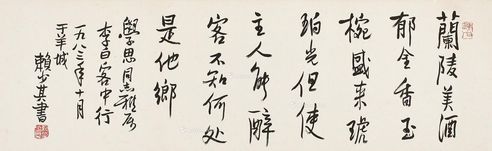 蘭陵美酒
郁金香玉
椀盛来琥
珀光但使
主人能醉
客不知何处
是他鄉
學思同志雅属
李白客中行
一九八三年十月
于羊城
賴少其書